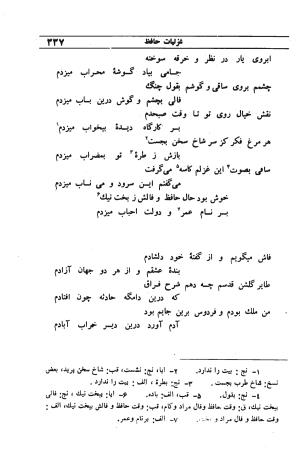 غزلیات حافظ ۳۳۷
ابروی یار در نظر و خرقه سوخته
جامی بیاد گوشهٔ محراب میزدم
چشمم بروی ساقی و گوشم بقول چنگ
فالی بچشم و گوش درین باب میزدم
نقش خیال روی تو تا وقت صبحدم
بر کارگاه دیدهٔ بیخواب میزدم۱
هر مرغ فکر کز سر شاخ سخن بجست۲
بازش ز طرهٔ۳ تو بمضراب میزدم
ساقی بصوت۴ این غزلم کاسه۵ می‌گرفت
می‌گفتم این سرود و می ناب میزدم
خوش بود حال حافظ و فالش ز بخت نیک۶
بر نام عمر۷ و دولت احباب میزدم
فاش میگویم و از گفتهٔ خود دلشادم
بندهٔ عشقم و از هر دو جهان آزادم
طایر گلشن قدسم چه دهم شرح فراق
که درین دامگه حادثه چون افتادم
من ملک بودم و فردوس برین جایم بود
آدم آورد درین دیر خراب آبادم
۱- نج: بیت را ندارد. ۲- ایا، نج: نشست، قب: شاخ سخن پرید، بعض
نسخ: شاخ طرب بجست. ۳- نج: بطرهٔ، الف: بیت را ندارد.
۴- نج: بقول. ۵- قب: باده. ۶- ایا، نج: فالی
بیخت نیک، ق: وقت حافظ وفال مراد وکام، قب: وقت حافظ و فالش ببخت نیک، الف:
وقت حافظ وفال مراد و ۷- الف: برنام وعمر.